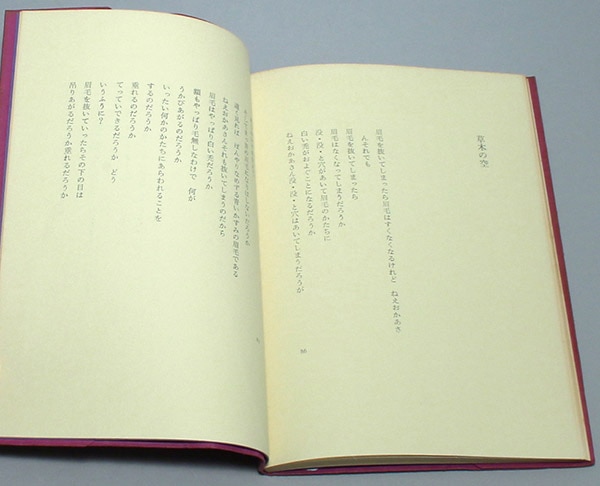 草木の空
眉毛を抜いてしまったら眉毛はすくなくなるけれど ねえおかあさ
んそれでも
眉毛を抜いてしまったら
眉毛はなくなってしまうだろうか
没・没・と穴があいて眉毛のかたちに
白い禿がおよぐことになるだろうか
ねえおかあさん没・没・と穴はあいてしまうだろうが
ねえおかあさんそれも抜いてしまうのだから
眉毛はやっぱり白い禿だろうか
額もやっぱり毛無しなわけで 何が
うかびあがるのだろうか
いったい何かのかたちにあらわれることを
するのだろうか
垂れるのだろうか
てっていできるだろうか どう
いうふうに?
眉毛を抜いていったらその下の目は
吊りあがるだろうか垂れるだろうか